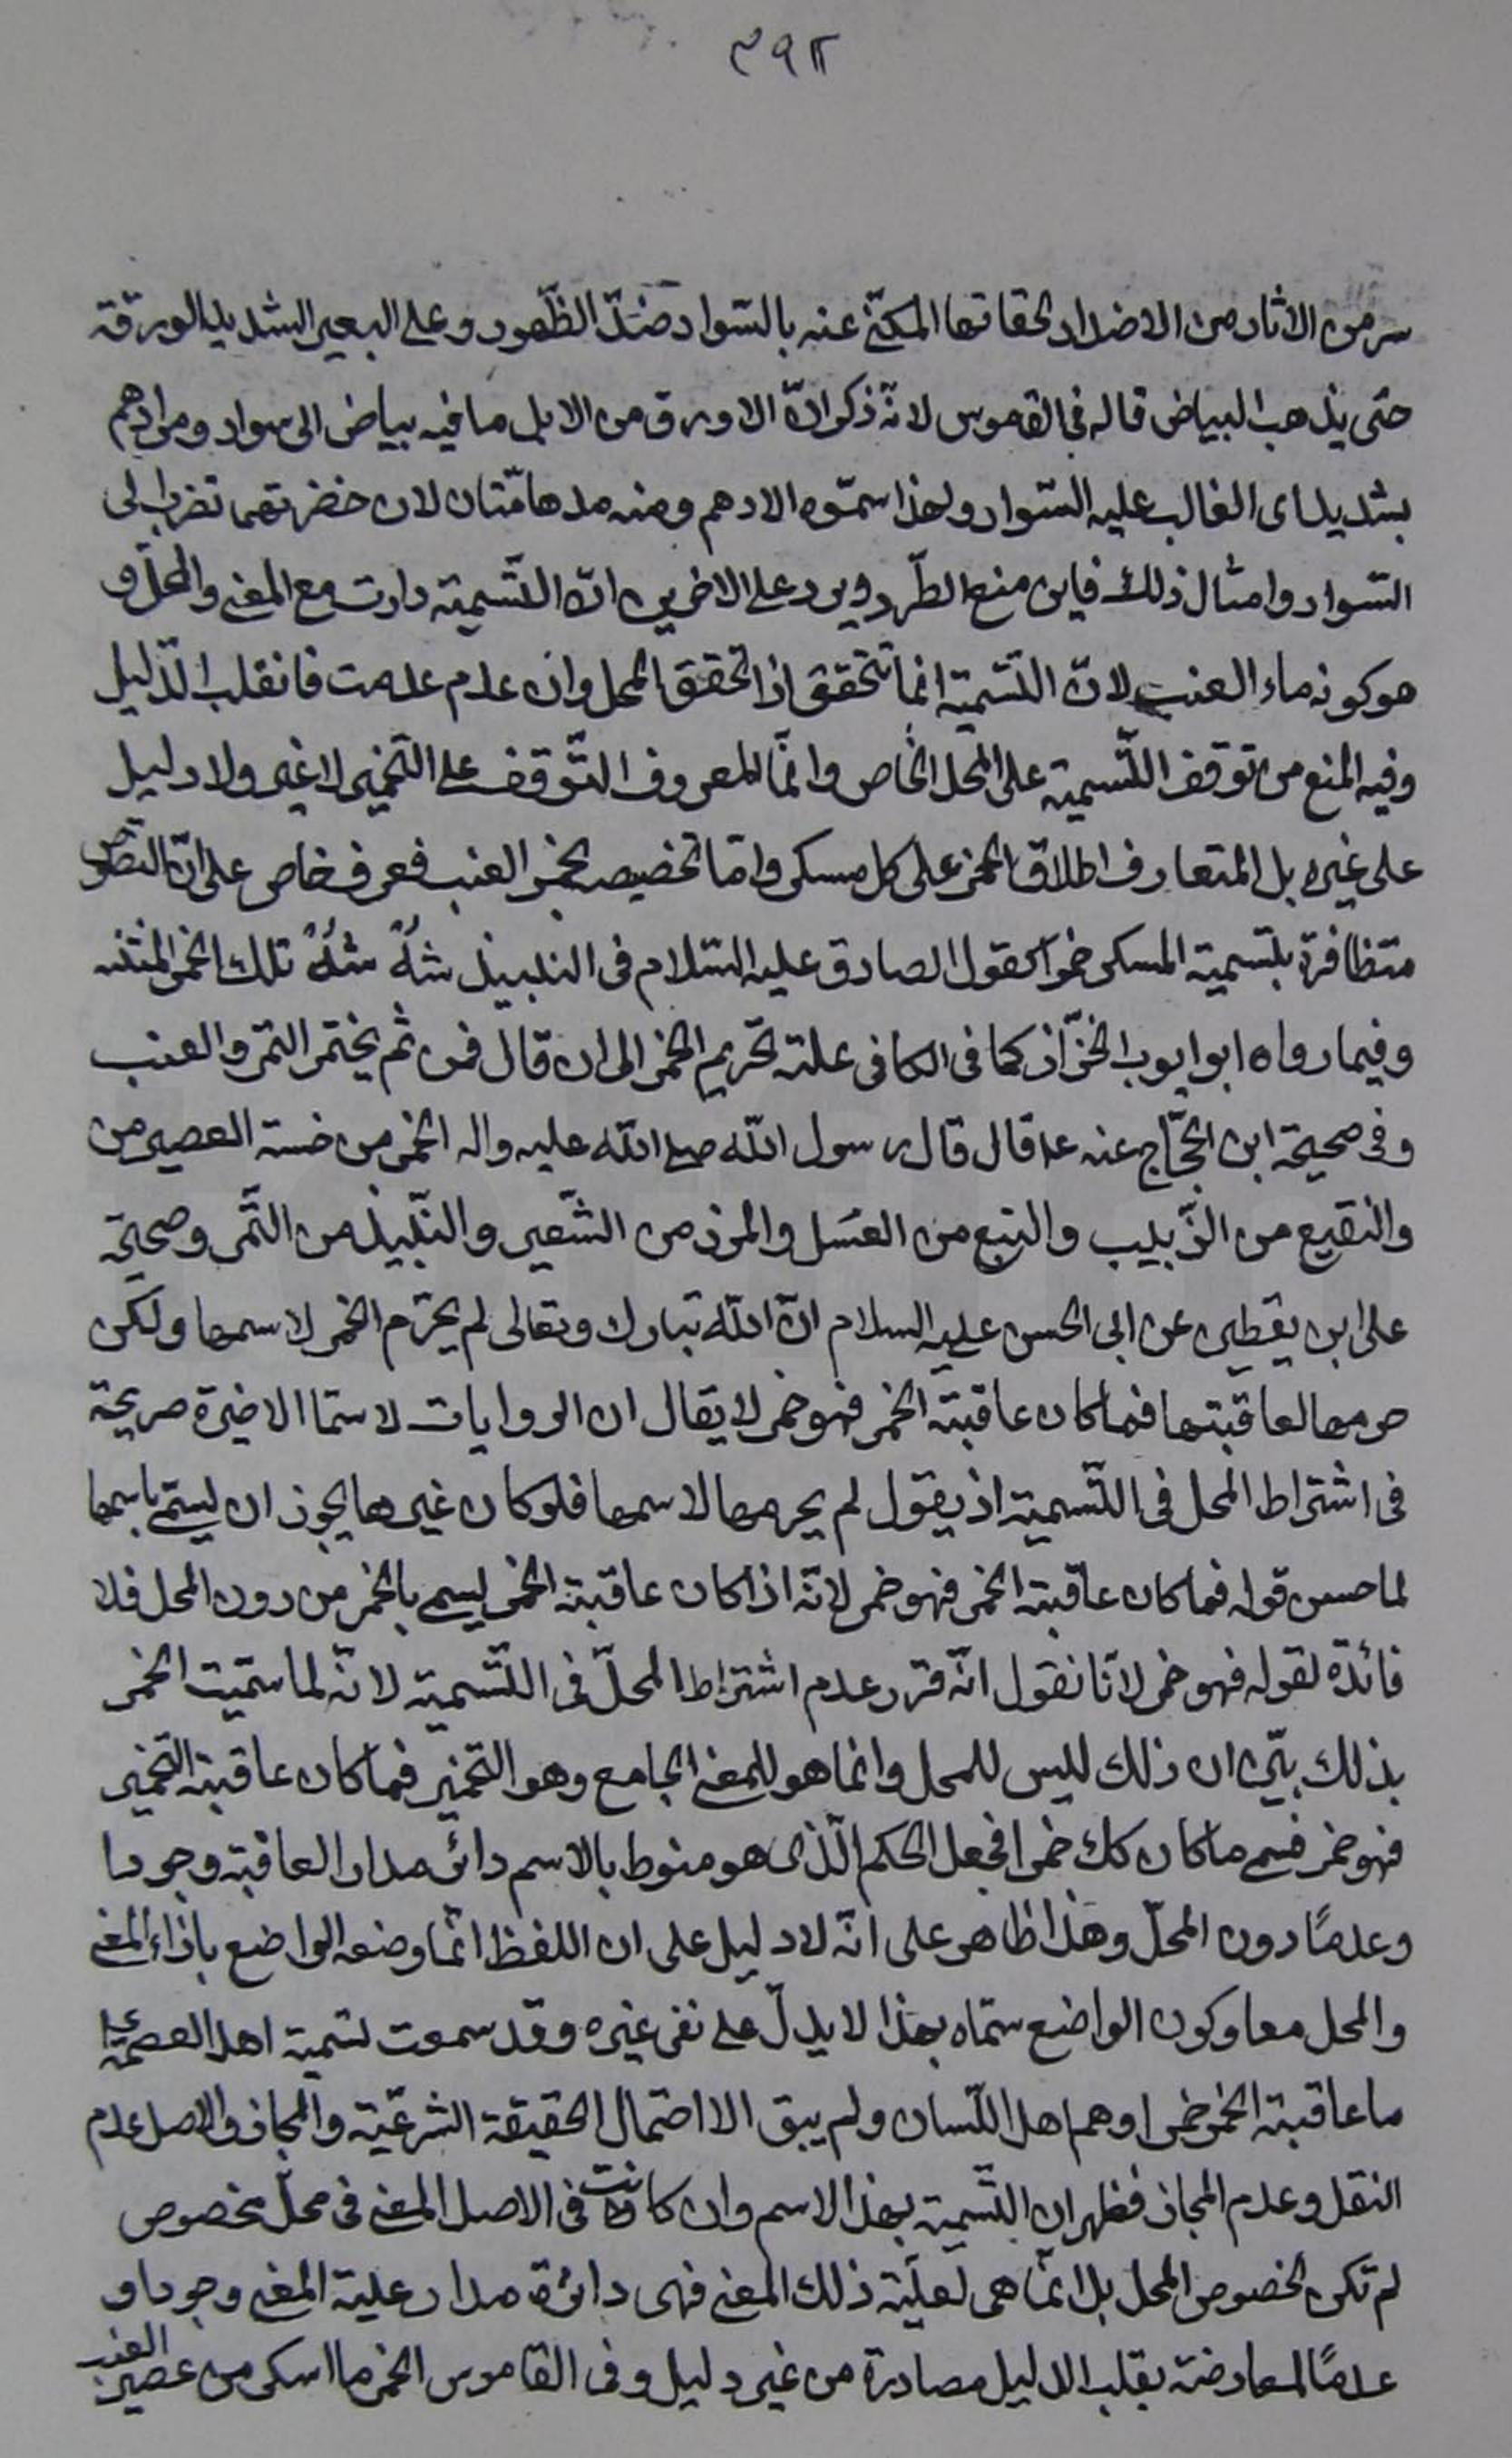 ٣٩٢
سرمن الاثار من الاضداد لحقاتها المكنّى عنه بالسّواد ضدّ الظّهور وعلى البعير الشديد الورقة
حتى يذهب البياض قاله فى القاموس لانّه ذكر انّ الاورق من الابل ما فيه بياض الى سواد ومرادهم
بشديد اى الغالب عليه السّواد ولهذا سمّوه الادهم ومنه مدهامّتان لان خضرتهما تضرب الى
السّواد وامثال ذلك فاين منع الطّرد ويرد على الاخيرين انّ التّسمية دارت مع المعنى والمحلّ و
هو كونه ماء العنب لانّ التّسمية انما تتحقق اذا تحقق المحل وان عدم عدمت فانقلب الدّليل
وفيه المنع من توقف التّسمية على المحل الخاص وانّما المعروف التّوقف على التخمير لا غير ولا دليل
على غيره بل المتعارف اطلاق الخمر على كل مسكر وامّا تخصيصه بخمر العنب فعرف خاص على انّ النصوص
متظافرة بتسمية المسكر خمرا كقول الصادق عليه السّلام فى النبيذ شُهْ شُهْ تلك الخمر المنتنه
وفيما رواه ابو ايوب الخزّاز كما فى الكافى علة تحريم الخمر الى ان قال فمن ثم يختمر التمر والعنب
وفى صحيحة ابن الحجّاج عنه ع قال قال رسول الله صلى الله عليه واله الخمر من خمسة العصير من
والنقيع من الزّبيب والبتع من العسَل والمزر من الشّعير والنّبيذ من التّمر وصحيحة
على ابن يقطين عن ابى الحسن عليه السلام انّ الله تبارك وتعالى لم يحرّم الخمر لاسمها ولكن
حرمها لعاقبتها فما كان عاقبته الخمر فهو خمر لا يقال ان الروايات لا سيّما الاخيرة صريحة
فى اشتراط المحل فى التّسمية اذ يقول لم يحرمها لاسمها فلو كان غيرها يجوز ان يسمّى باسمها
لما حسن قوله فما كان عاقبته الخمر فهو خمر لانّه اذا كان عاقبته الخمر يسمى بالخمر من دون المحل فلا
فائدة لقوله فهو خمر لانّا نقول انّه قرر عدم اشتراط المحلّ فى التّسمية لانّه لما سمّيت الخمر
بذلك بيّن ان ذلك ليس للمحل وانما هو للمعنى الجامع وهو التخمير فما كان عاقبته التخمير
فهو خمر فسمى ما كان كك خمرا فجعل الحكم الّذى هو منوط بالاسم دائر مدار العاقبة وجودا
وعدمًا دون المحلّ وهذا ظاهر على انّه لا دليل على ان اللفظ انّما وضعه الواضع بازاء المعنى
والمحل معا وكون الواضع سمّاه بهذا لا يدلّ على نفى غيره وقد سمعت تسمية اهل العصمة ع
ما عاقبته الخمر خمرا وهم اهل اللّسان ولم يبق الا احتمال الحقيقة الشرعيّة والمجاز والاصل عدم
النقل وعدم المجاز فظهر ان التّسمية بهذا الاسم وان كانت فى الاصل المعنى فى محلّ مخصوص
لم تكن لخصوص المحل بل انّما هى لعليّة ذلك المعنى فهى دائرة مدار علية المعنى وجودا و
عدمًا المعارضة بقلب الدليل مصادرة من غير دليل وفى القاموس الخمر ما اسكر من عصير العنب